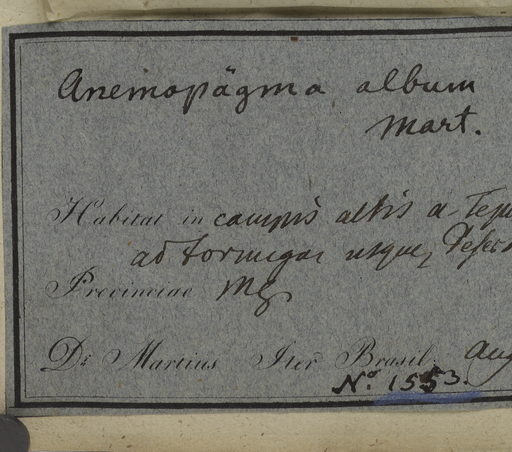 Anemopägma album
Mart.
Habitat in campis altis a Teju
ad Formigas usque, Desert
Provinciae MG
Dr Martius Iter Brasil. Aug
No. 1553.